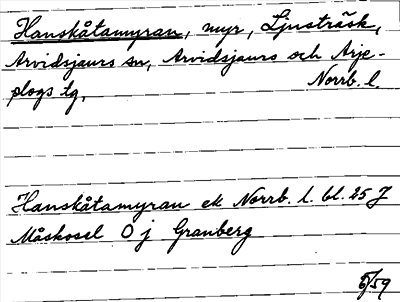 Hanskåtamyran, myr, Ljusträsk,
Arvidsjaurs sn, Arvidsjaurs och Arje-
plogs tg,
Norrb. l.
Hanskåtamyran ek Norrb. l. bl. 25 J
Måskosel O j Granberg
5/59